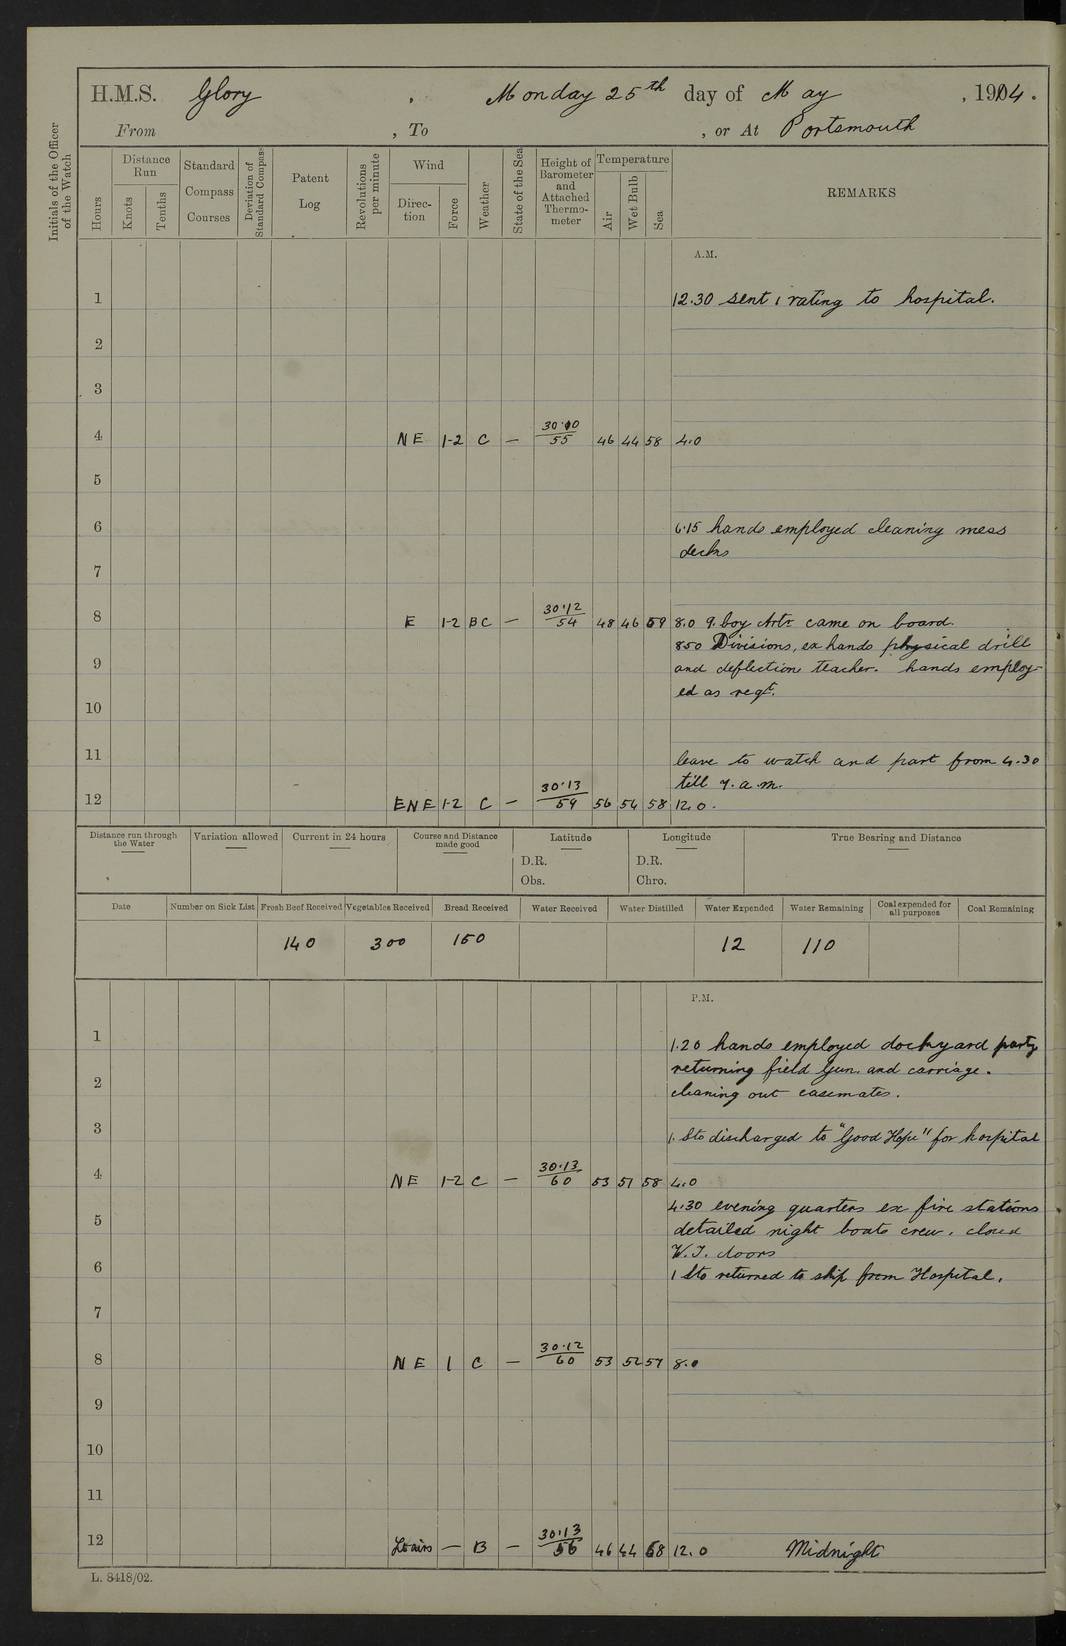 H.M.S. Glory , Monday 25th day of May , 1914.
From , To , or At Portsmouth
Initials of the Officer of the Watch
Hours
Distance Run
Knots
Tenths
Standard Compass Courses
Deviation of Standard Compass
Patent Log
Revolutions per minute
Wind
Direction
Force
Weather
State of the Sea
Height of Barometer and Attached Thermometer
Temperature
Air
Wet Bulb
Sea
REMARKS
A.M.
1 12.30 sent 1 rating to hospital.
2
3
4 NE 1-2 C — 30.10/55 46 44 58 4.0
5
6 6.15 hands employed cleaning mess
decks
7
8 E 1-2 BC — 30.12/54 48 46 59 8.0 9. boy Artr. came on board.
850 Divisions, ex hands physical drill
9 and deflection teacher. hands employ-
10 ed as reqd.
11 leave to watch and part from 4.30
till 7. a.m.
12 ENE 1-2 C — 30.13/59 56 54 58 12.0.
Distance run through the Water
Variation allowed
Current in 24 hours
Course and Distance made good
Latitude
D.R.
Obs.
Longitude
D.R.
Chro.
True Bearing and Distance
Date
Number on Sick List
Fresh Beef Received
Vegetables Received
Bread Received
Water Received
Water Distilled
Water Expended
Water Remaining
Coal expended for all purposes
Coal Remaining
140 300 150 12 110
P.M.
1 1.20 hands employed dockyard party
returning field gun and carriage.
2 cleaning out casemates.
3 1. Sto discharged to "Good Hope" for hospital
4 NE 1-2 C — 30.13/60 53 51 58 4.0
4.30 evening quarters ex fire stations
5 detailed night boats crew. closed
W.T. doors
6 1 Sto returned to ship from Hospital.
7
8 NE 1 C — 30.12/60 53 52 57 8.0
9
10
11
12 — B — 30.13/56 46 44 58 12.0 Midnight
L. 8418/02.